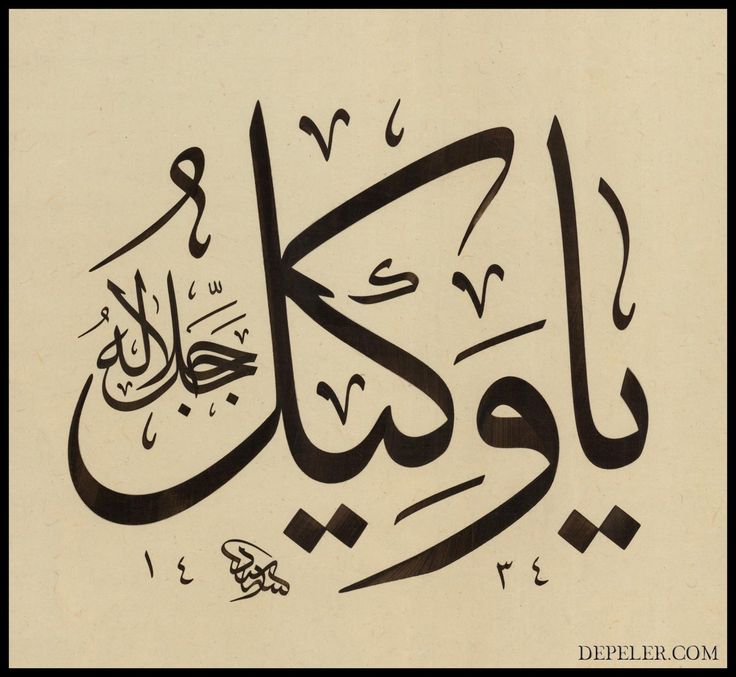 يَا وَكِيلُ
جَلَّ جَلَالُهُ
١٤ ٣٤
DEPELER.COM